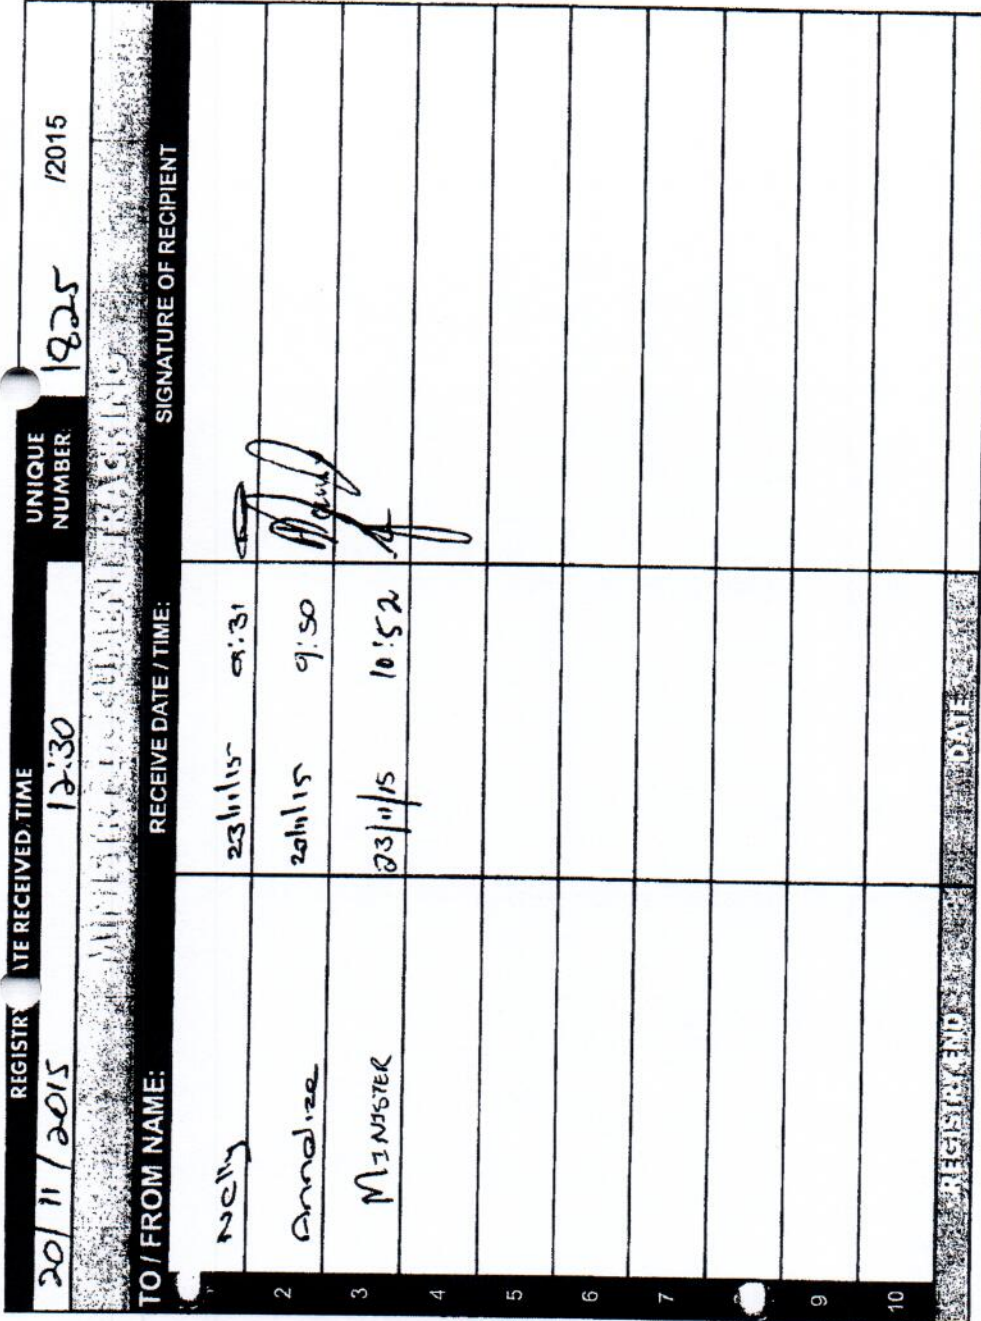 REGISTRY ATE RECEIVED TIME UNIQUE NUMBER:
20/11/2015 12:30 1825 /2015
TRACKING
TO / FROM NAME: RECEIVE DATE / TIME: SIGNATURE OF RECIPIENT
Nelly 23/11/15 9:31
2 Annalize 20/11/15 9:50
3 MINISTER 23/11/15 10:52
4
5
6
7
9
10
REGISTRY END DATE